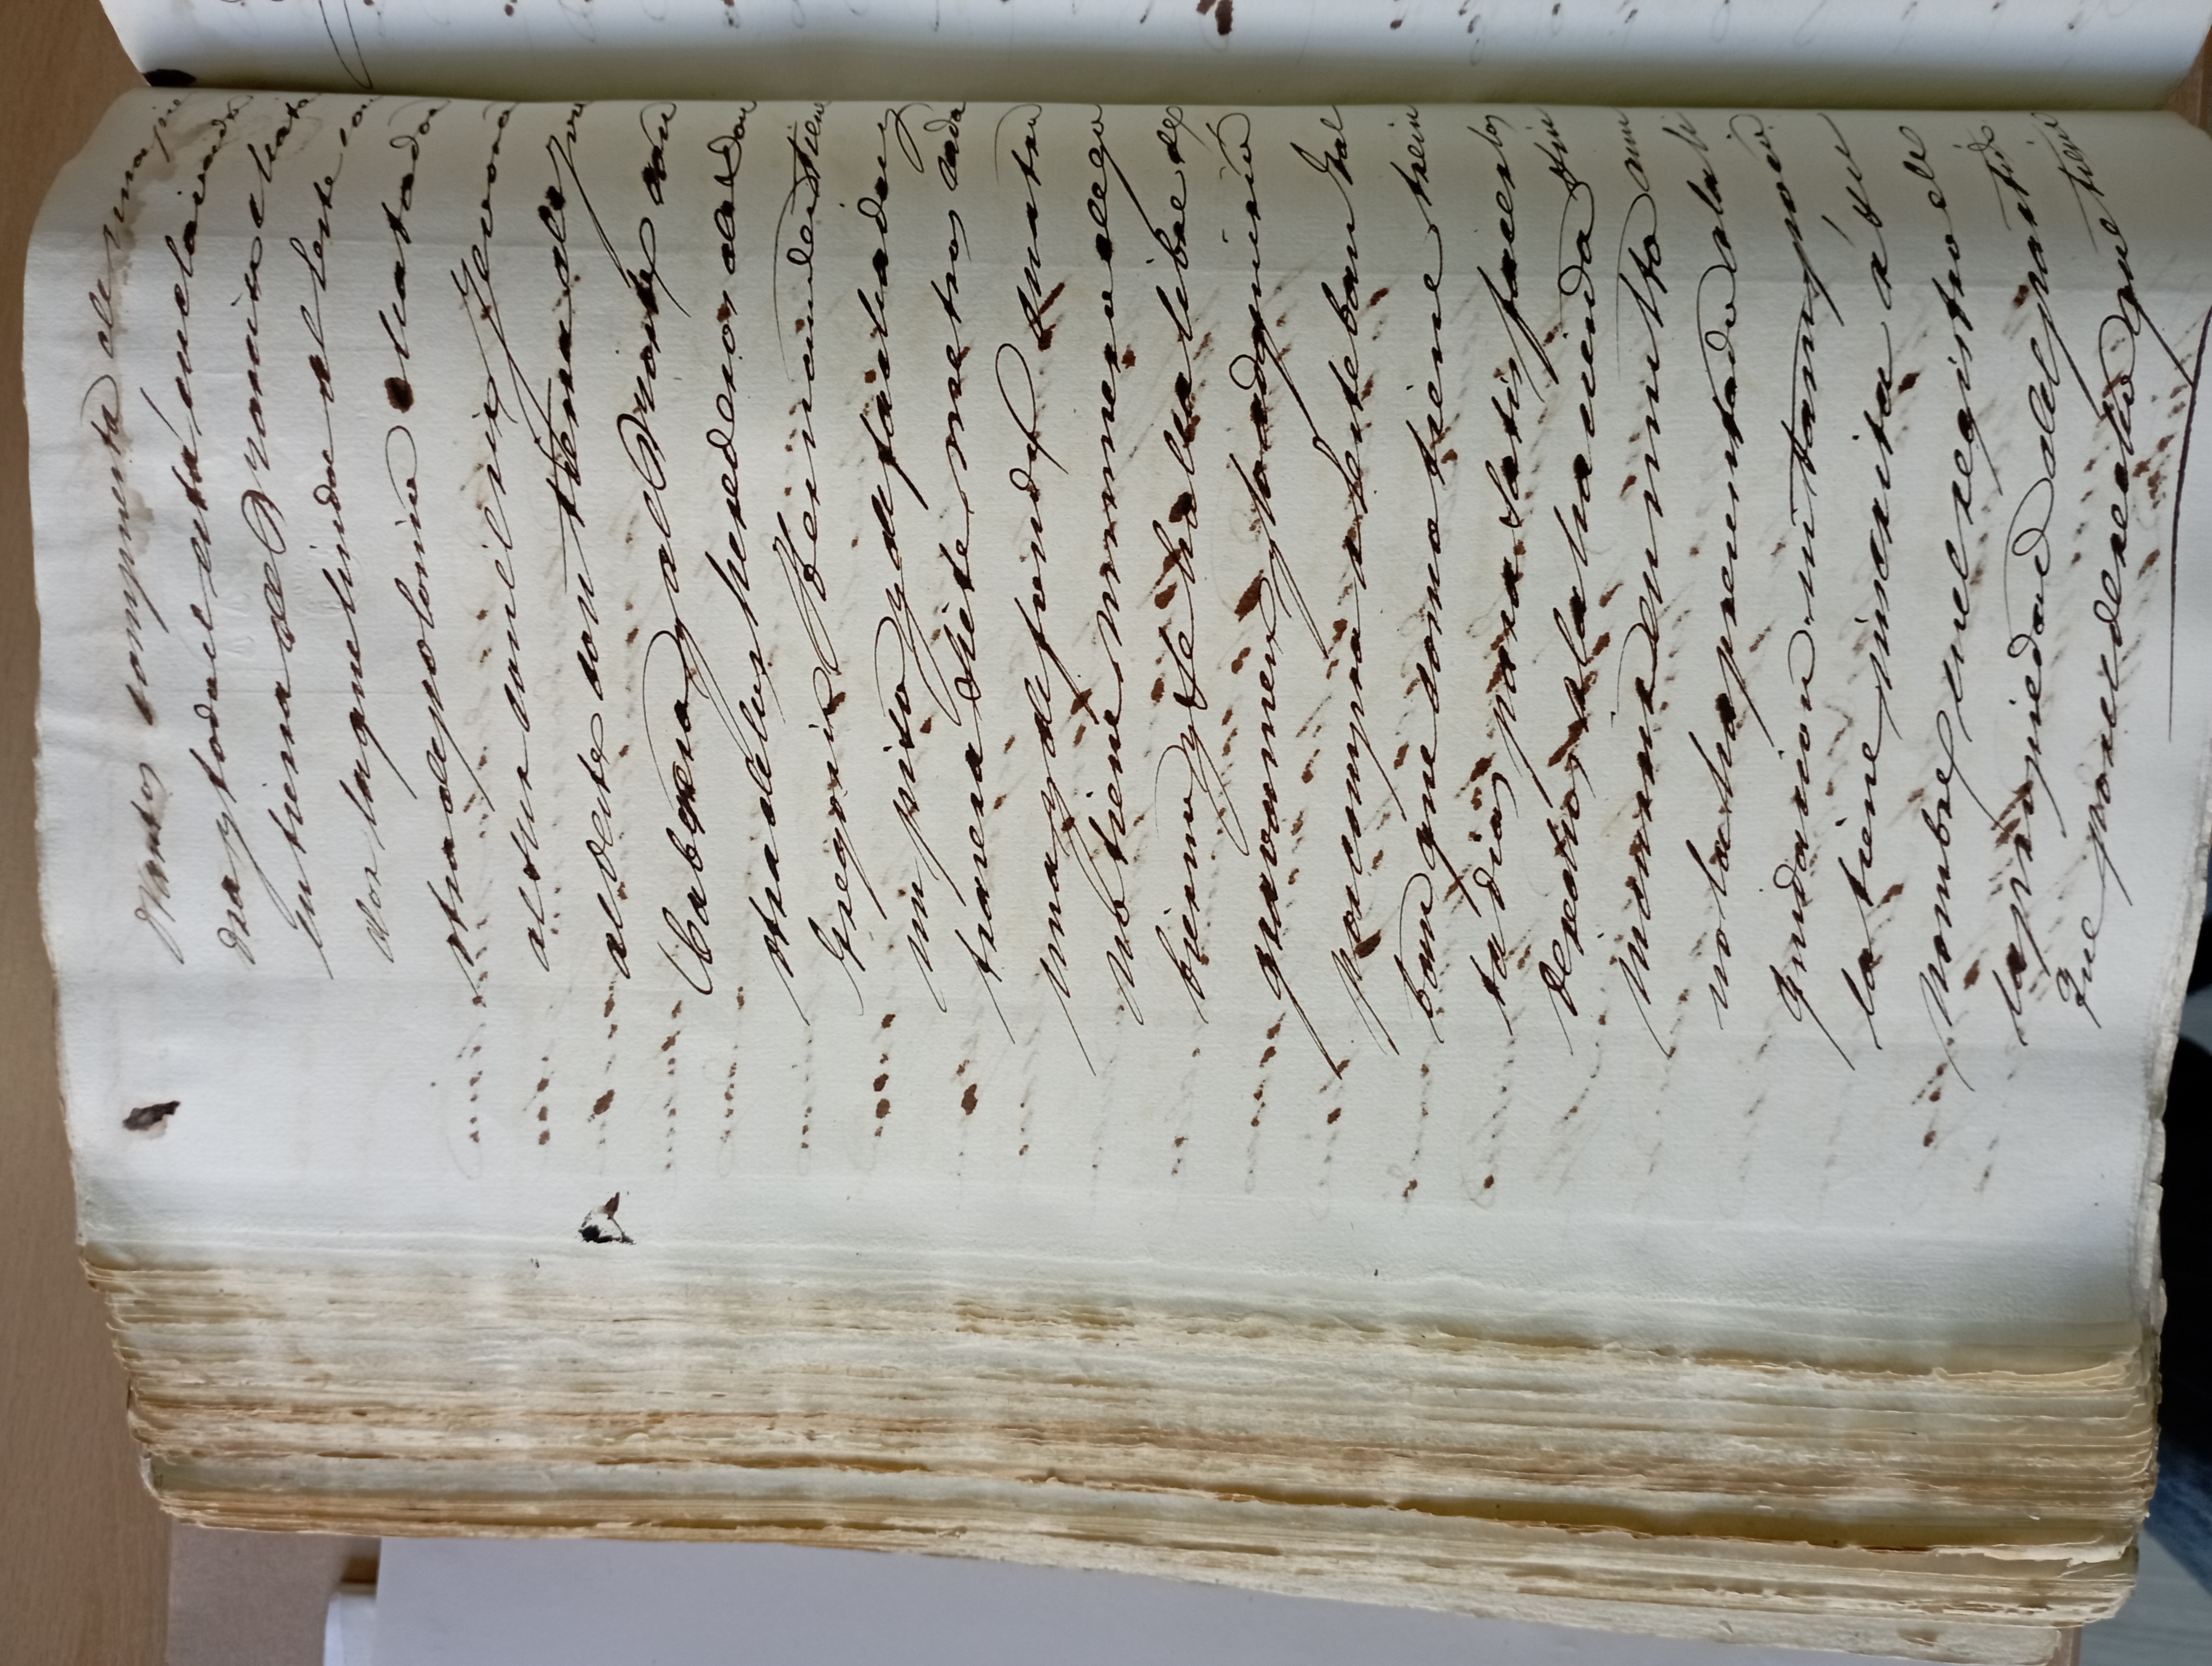 Santos compuesta de una pie
dra y toda el está enclavada
en tierra de Narciso Mata
dor la que linda al Leste con
otra de polonia Matador
al sur con el rio Jevora
al Oeste con tierra de
Cabrera y al Norte con
otra de los herederos de Don
Gregorio Hernandez tiene
un piso y de fachada y
trasera siete metros cada
una y de fondo cuatro
no tiene numero de go
bierno y se halla libre de
gravamen y lo adquirió
por compra a Esteban Gal
ban que como tiene trein
ta dias para satisfacer los
derechos a la hacienda sin
incurrir en multa aun
no la ha presentado a la li
quidacion ni tampoco
la tiene inscrita á su
nombre en el registro de
la propiedad del partido
Que por el derecho que tiene